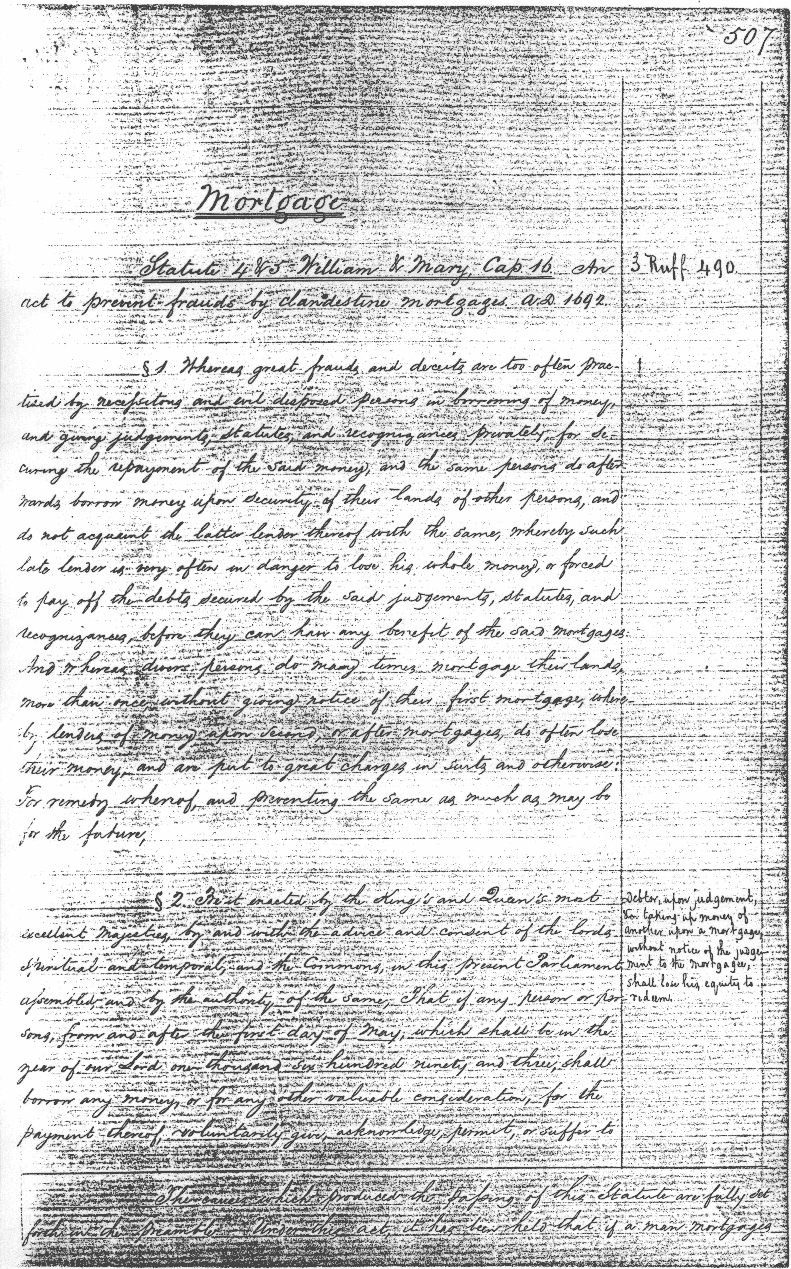 507
Mortgage
Statute 4 & 5 William & Mary, Cap. 16. An
3 Ruff. 490.
act to prevent frauds by clandestine mortgages. A.D. 1692.
§ 1. Whereas great frauds and deceits are too often prac-
tised by necessitous and evil disposed persons in borrowing of money,
and giving judgements, statutes, and recognizances privately, for se-
curing the repayment of the said money, and the same persons do after
wards borrow money upon security of their lands of other persons, and
do not acquaint the latter lender thereof with the same, whereby such
late lender is very often in danger to lose his whole money, or forced
to pay off the debts secured by the said judgements, statutes, and
recognizances, before they can have any benefit of the said mortgages
And whereas divers persons do many times mortgage their lands,
more than once, without giving notice of their first mortgage, where-
by lenders of money upon second, or after mortgages, do often lose
their money, and are put to great charges in suits and otherwise:
For remedy whereof, and preventing the same as much as may be
for the future,
§ 2. Be it enacted by the King's and Queen's most
excellent Majesties, by and with the advice and consent of the lords
spiritual and temporal, and the Commons, in this present Parliament
assembled, and by the authority of the same, That if any person or per-
sons, from and after the first day of May, which shall be in the
year of our Lord one thousand six hundred ninety and three, shall
borrow any money, or for any other valuable consideration, for the
payment thereof, voluntarily give, acknowledge, permit, or suffer to
Debtor, upon judgement,
for taking up money of
another upon a mortgage,
without notice of the judge-
ment to the mortgagee,
shall lose his equity to
redeem.
The causes which produced the passing of this Statute are fully set
forth in the preamble. Under this act, it has been held that if a man mortgages